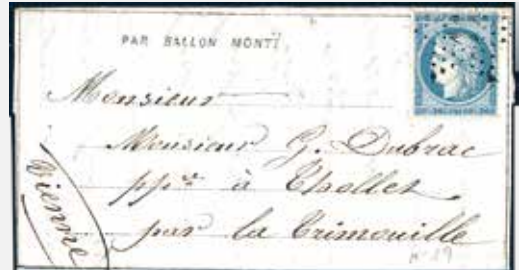 PAR BALLON MONTÉ
Monsieur
Monsieur G. Dubrac
ppre à Thollet
par la Trimouille
Vienne